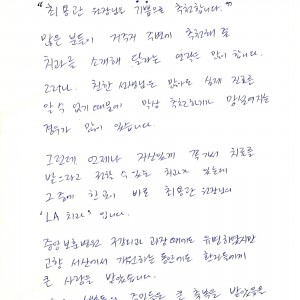 "최용관 원장님은 기쁨으로 추천합니다."
많은 분들이 저희가 주변에 추천해 줄
치과를 소개해 달라는 연락을 많이 합니다.
그러나 친한 선생님은 많아도 실제 진료는
알 수 없기 때문에 막상 추천하기는 망설여지는
경우가 많이 있습니다.
그런데 언제나 자신있게 거기서 치료를
받으라고 권할 수 있는 치과가 있는데
그중에 한 곳이 바로 최용관 원장님의
"LA 치과" 입니다.
중앙보훈병원 구강외과 과장 때에도 유명하였지만
고향 서산에서 개원하는 동안에도 환자들에게
큰 사랑을 받았습니다.
주민들은 큰 축복을 받았음을